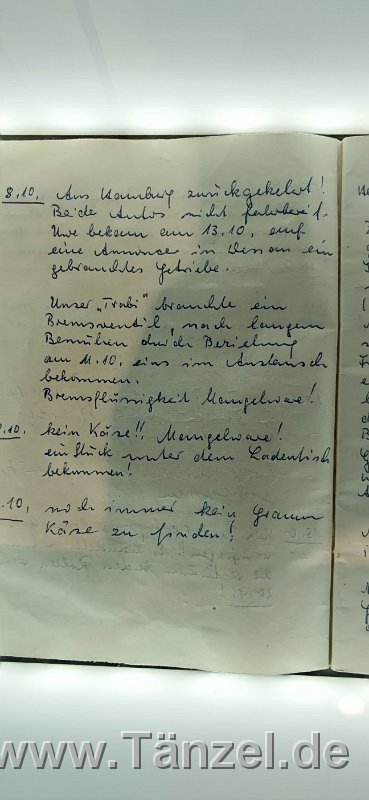 8.10. Aus Hamburg zurückgekehrt!
Beide Autos nicht fahrbereit.
Uwe bekam am 13.10. auf
eine Annonce in Dessau ein
gebrauchtes Getriebe.
Unser „Trabi" brauchte ein
Bremsventil, nach langem
Bemühen durch Beziehung
am 11.10. eins im Austausch
bekommen.
Bremsflüssigkeit Mangelware!
.10. kein Käse!!, Mangelware!
ein Stück unter dem Ladentisch
bekommen!
.10. noch immer kein Gramm
Käse zu finden!
www.Tänzel.de